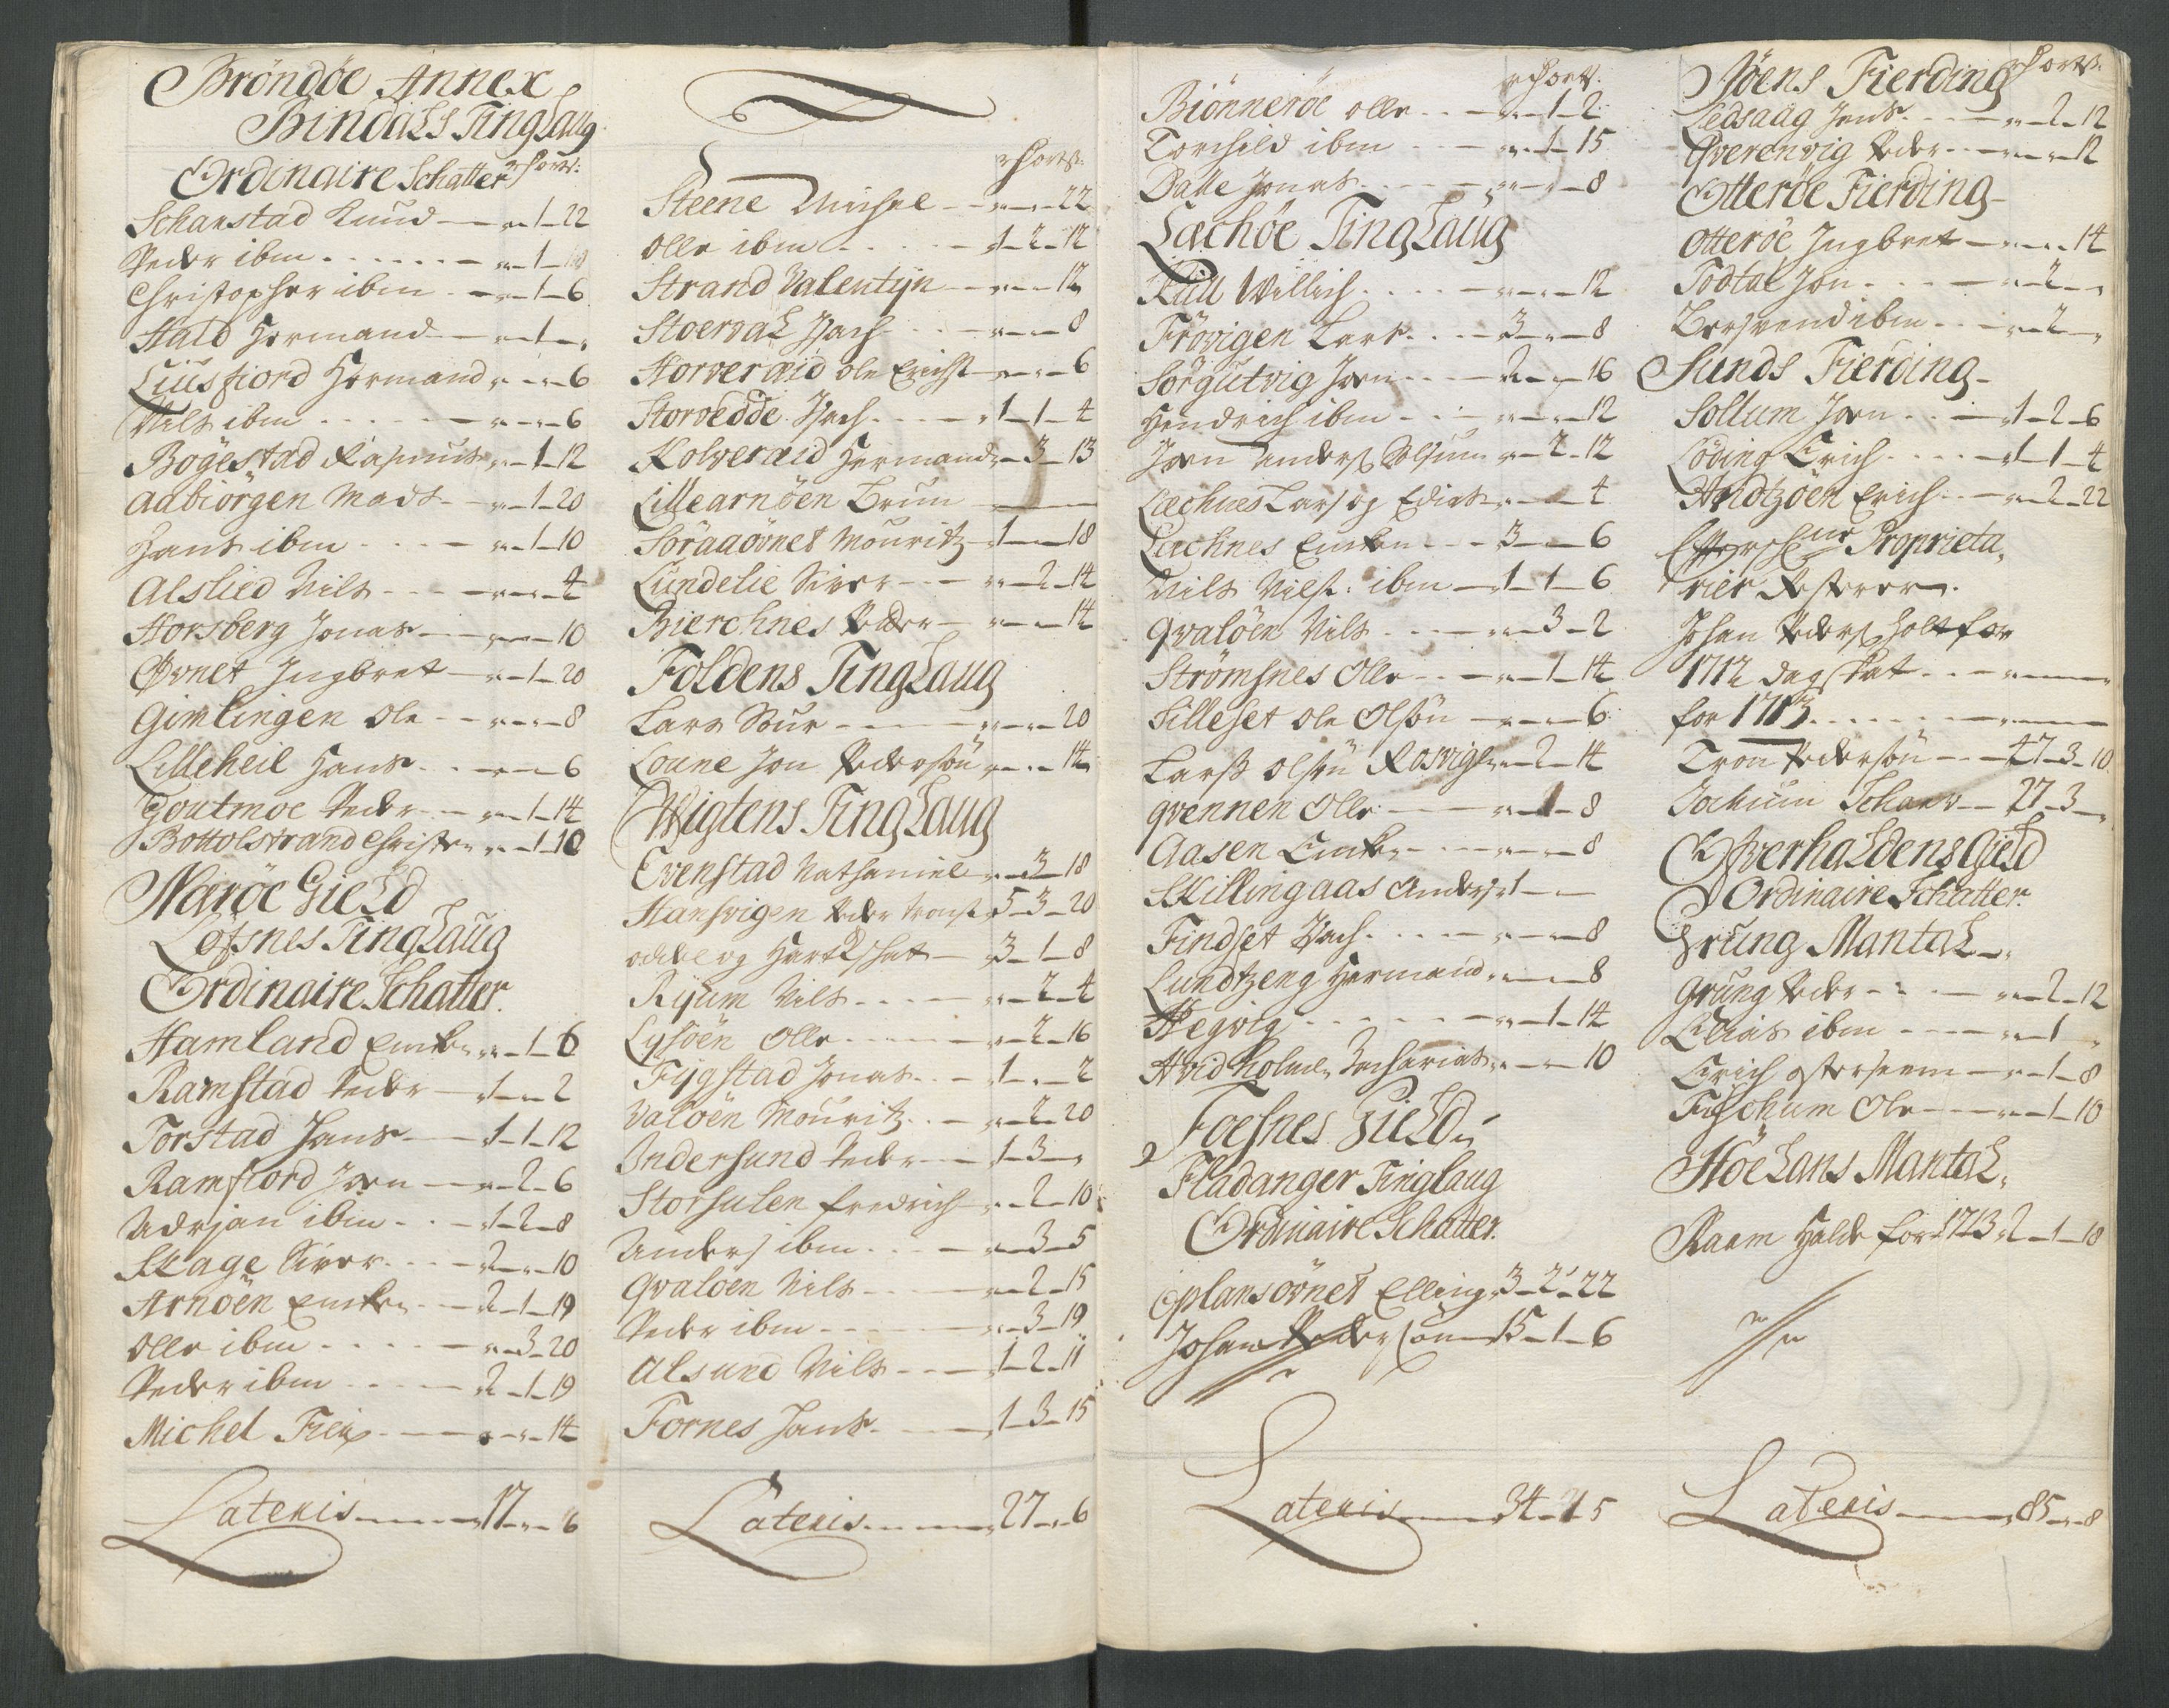 Bröndöe Annex
Bindals Ting Laug
Ordinaire Schatter
Schanstad Knud - „ - 1 - 22
Peder ibm - „ - 1 -
Christopher ibm - „ - 1 - 6
Hald Hermand - „ - 1 - „
Liusfiord Hermand „ - „ - 6
Nils ibm - „ - „ - 6
Bogestad Rasmus „ - 1 - 12
Aabiörgen Mads - „ - 1 - 20
Hans ibm - „ - 1 - 10
Alslied Nils - „ - „ - 4
Horsberg Jonas - „ - „ - 10
Øvnet Ingbret - „ - 1 - 20
Gimlingen Ole - „ - „ - 8
Lilleheil Hans - „ - „ - 6
Goutmoe Peder - „ - 1 - 14
Bottolstrand Christen „ - 1 - 10
Næröe Gield
Løfsnes Ting Laug
Ordinaire Schatter.
Hamland Enken „ - 1 - 6
Ramstad Peder - 1 - „ - 2
Torstad Hans - 1 - 1 - 12
Ramfiord Joen - „ - 2 - 6
Adrian ibm - 1 - 2 - 8
Skage Siver - 2 - „ - 10
Arnöen Enken - 2 - 1 - 19
Olle ibm - „ - 3 - 20
Peder ibm - 2 - 1 - 19
Michel - „ - „ - 14
Lateris - 17 - „ - 6
Steene Michel - „ - „ - 22
Olle ibm - 1 - 2 - 12
Strand Valentijn - „ - „ - 12
Stoerval Isach - „ - „ - 8
Horveræid Ole Erichs - „ - „ - 6
Storvedde Isach - 1 - 1 - 4
Kolveræid Hermand „ - 3 - 13
Lillearnöen Brun
Söraaövnet Mouritz - 1 - „ - 18
Lundelie Siver - „ - 2 - 14
Bierchnes Peder - „ - „ - 14
Foldens Ting Laug
Lars - „ - „ - 20
Loune Jon Pedersön „ - „ - 14
Wigtens Ting Laug
Evenstad Nathaniel „ - 3 - 18
Hansvigen Peder 5 - 3 - 20
3 - 1 - 8
Ryum Nils - „ - 2 - 4
Lysöen Olle - „ - 2 - 16
Fygstad Jonas - 1 - „ - 2
Valöen Mouritz - „ - 2 - 20
Indersund Peder - 1 - 3 - „
Storsulen Fredrich - „ - 2 - 10
Anders ibm - „ - 3 - 5
Qvalöen Nils - „ - 2 - 15
Peder ibm - „ - 3 - 19
Alsund Nils - 1 - 2 - 11
Fornes Hans - 1 - 3 - 15
Lateris - 27 - „ - 6
Biönneröe Olle - „ - 1 - 2
Torchild ibm - „ - 1 - 15
Dalle Jonas - „ - „ - 8
Lechöe Ting Laug
Kiill Willich - „ - „ - 12
Frövigen Lars - 3 - „ - 8
Sörgutvig Joen - 2 - „ - 16
Hendrich ibm - „ - „ - 12
Joen Anders „ - 2 - 12
Lechnes Lars og „ - „ - 4
Lechnes Enken - 3 - „ - 6
Nils Nils: ibm - 1 - 1 - 6
Qvalöen Nils - „ - 3 - 2
Strömsnes Olle - „ - 1 - 14
Silleset Ole Olsön - „ - „ - 6
Lars Olsön „ - 2 - 14
Qvennen Olle - „ - 1 - 8
Aasen Enken - „ - „ - 8
Skillingaas Anders 1 - „ -
Findset Isach - „ - „ - 8
Lundtzeng Hermand „ - „ - 8
Hegvig - „ - 1 - 14
Hvidholmen Zacharias „ - „ - 10
Foesnes Gield
Fladanger Tinglaug
Ordinaire Schatter.
Oplansövnet Elling 3 - 2 - 22
Johan Pedersön - 15 - 1 - 6
Lateris - 34 - 1 5
Jöens Fierding
Ledsaag Jens - „ - 2 - 12
Qverenvig Peder - „ - „ - 12
Otteröe Fierding -
Otteröe Ingbret - „ - „ - 14
Todtal Jon - „ - 2 - „
ibm - „ - 2 - „
Sunds Fierding -
Sollum Joen - 1 - 2 - 6
Löding Erich - 1 - 1 - 4
Hndtzöen Erich - „ - 2 - 22
Proprieta,
rier Resterer.
Johan Peders Holt for
1712 dags skat
for 1713
Tron Pedersön - 47 - 3 - 10
Jochum Schaer - 27 - 3 - „
Ofverhaldens Gield
Ordinaire Schatter.
Grung Mantal
Grung Peder - „ - 2 - 12
Elias ibm - „ - 1 „
Erich - „ - 1 - 8
Fischum Ole - „ - 1 - 10
Höelans Mantal.
Raem Halde for 1713 2 - 1 - 18
Lateris - 85 - „ - 8